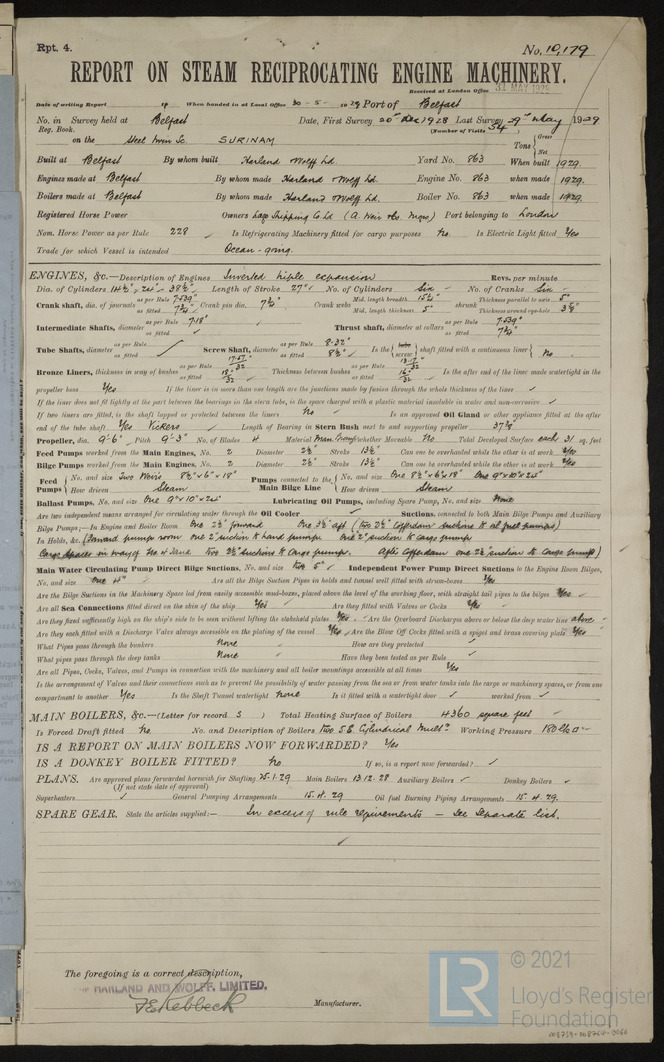 Rpt. 4.
No. 10,179
REPORT ON STEAM RECIPROCATING ENGINE MACHINERY.
Received at London Office 31 MAY 1929
Date of writing Report 19 When handed in at Local Office 30-5-1929 Port of Belfast
No. in Survey held at Belfast Date, First Survey 20th Dec 1928 Last Survey 29th May 1929
Reg. Book. (Number of Visits 54)
on the Steel Twin Sc. SURINAM Tons Gross Net
Built at Belfast By whom built Harland Wolff Ld. Yard No. 863 When built 1929.
Engines made at Belfast By whom made Harland Wolff Ld. Engine No. 863 when made 1929.
Boilers made at Belfast By whom made Harland Wolff Ld. Boiler No. 863 when made 1929.
Registered Horse Power Owners Lago Shipping Co Ld (A. Weir & Co. Mgrs) Port belonging to London
Nom. Horse Power as per Rule 228 Is Refrigerating Machinery fitted for cargo purposes No. Is Electric Light fitted Yes
Trade for which Vessel is intended Ocean-going.
ENGINES, &c.—Description of Engines Inverted triple expansion Revs. per minute
Dia. of Cylinders 14½", 24", 38½" Length of Stroke 27" No. of Cylinders Six No. of Cranks Six
Crank shaft, dia. of journals as per Rule 7.539" as fitted 7¾" Crank pin dia. 7¾" Crank webs Mid. length breadth 15¼" Mid. length thickness 5" shrunk Thickness parallel to axis 5" Thickness around eye-hole 3⅝"
Intermediate Shafts, diameter as per Rule 7.18" as fitted Thrust shaft, diameter at collars as per Rule 7.539" as fitted 7¾"
Tube Shafts, diameter as per Rule as fitted Screw Shaft, diameter as per Rule 8.32" as fitted 8½" Is the tube screw shaft fitted with a continuous liner No
Bronze Liners, thickness in way of bushes as per Rule as fitted Thickness between bushes as per Rule as fitted Is the after end of the liner made watertight in the
propeller boss Yes If the liner is in more than one length are the junctions made by fusion through the whole thickness of the liner
If the liner does not fit tightly at the part between the bearings in the stern tube, is the space charged with a plastic material insoluble in water and non-corrosive
If two liners are fitted, is the shaft lapped or protected between the liners No Is an approved Oil Gland or other appliance fitted at the after
end of the tube shaft Yes Vickers Length of Bearing in Stern Bush next to and supporting propeller
Propeller, dia. 9'-6" Pitch 9'-3" No. of Blades 4 Material Man. Bronze whether Moveable No Total Developed Surface each 31 sq. feet
Feed Pumps worked from the Main Engines, No. 2 Diameter 2½" Stroke 13½" Can one be overhauled while the other is at work Yes
Bilge Pumps worked from the Main Engines, No. 2 Diameter 2½" Stroke 13½" Can one be overhauled while the other is at work Yes
Feed Pumps No. and size Two Weirs 8½"×6"×18" How driven Steam Pumps connected to the Main Bilge Line No. and size One 8½"×6"×18" One 9"×10"×24" How driven Steam
Ballast Pumps, No. and size One 9"×10"×24" Lubricating Oil Pumps, including Spare Pump, No. and size None
Are two independent means arranged for circulating water through the Oil Cooler Suctions, connected to both Main Bilge Pumps and Auxiliary
Bilge Pumps;—In Engine and Boiler Room One 2½" forward One 3½" aft (two 2½" Cofferdam suctions to oil fuel pumps)
In Holds, &c. (Forward pump room one 2" suction to hand pump one 2" suction to cargo pump
Cargo spaces in way of two 2½" suctions to Cargo pump. After Cofferdam one 2½" suction to Cargo pump)
Main Water Circulating Pump Direct Bilge Suctions, No. and size two 5" Independent Power Pump Direct Suctions to the Engine Room Bilges,
No. and size one 4" Are all the Bilge Suction Pipes in holds and tunnel well fitted with strum-boxes Yes
Are the Bilge Suctions in the Machinery Space led from easily accessible mud-boxes, placed above the level of the working floor, with straight tail pipes to the bilges Yes
Are all Sea Connections fitted direct on the skin of the ship Yes Are they fitted with Valves or Cocks Yes
Are they fixed sufficiently high on the ship's side to be seen without lifting the stokehold plates Yes Are the Overboard Discharges above or below the deep water line above
Are they each fitted with a Discharge Valve always accessible on the plating of the vessel Yes Are the Blow Off Cocks fitted with a spigot and brass covering plate Yes
What Pipes pass through the bunkers None How are they protected
What pipes pass through the deep tanks None Have they been tested as per Rule
Are all Pipes, Cocks, Valves, and Pumps in connection with the machinery and all boiler mountings accessible at all times Yes
Is the arrangement of Valves and their connections such as to prevent the possibility of water passing from the sea or from water tanks into the cargo or machinery spaces, or from one
compartment to another Yes Is the Shaft Tunnel watertight None Is it fitted with a watertight door worked from
MAIN BOILERS, &c.—(Letter for record S) Total Heating Surface of Boilers 4360 square feet
Is Forced Draft fitted No. No. and Description of Boilers two S.E. Cylindrical Multr. Working Pressure 180 lb
IS A REPORT ON MAIN BOILERS NOW FORWARDED? Yes
IS A DONKEY BOILER FITTED? No If so, is a report now forwarded?
PLANS. Are approved plans forwarded herewith for Shafting 25.1.29 Main Boilers 13.12.28 Auxiliary Boilers Donkey Boilers
(If not state date of approval)
Superheaters General Pumping Arrangements 15.4.29 Oil fuel Burning Piping Arrangements 15.4.29.
SPARE GEAR. State the articles supplied:— In excess of rule requirements — See Separate list.
The foregoing is a correct description,
HARLAND AND WOLFF, LIMITED.
F E Rebbeck Manufacturer.
LR © 2021
Lloyd's Register
Foundation